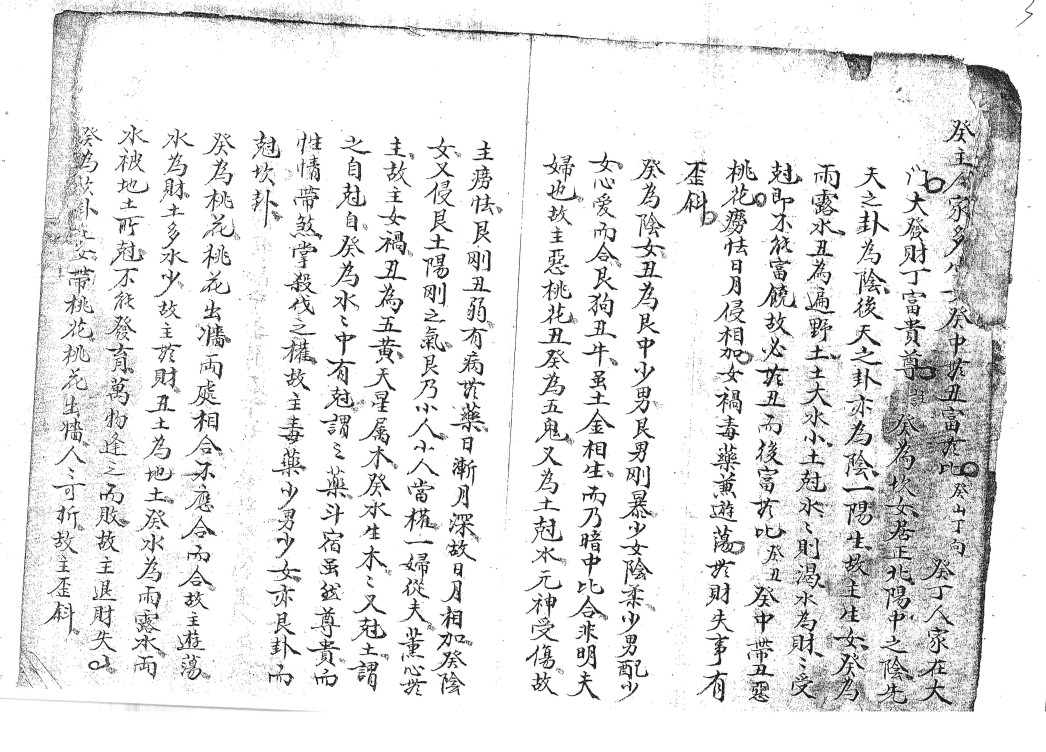 癸主人家多少女癸中於丑富於比癸山丁向 癸丁人家在大
門大發財丁富貴尊 癸為坎女居正北陽中之陰先
天之卦為陰後天之卦亦為陰一陽生故主生女癸為
雨露水丑為遍野土土大水小土尅水〻則渴水為財〻受
尅即不能富饒故必於丑而後富於比癸丑 癸中帶丑惡
桃花癆怯日月侵相加女禍毒藥蕪遊蕩於財失事有
歪斜
癸為陰女丑為艮中少男艮男剛暴少女陰柔少男配少
女心愛而合艮狗丑牛虽土金相生而乃暗中比合非明夫
婦也故主惡桃花丑癸為五鬼又為土尅水元神受傷故
主癆怯艮剛丑弱有病於藥日漸月深故日月相加癸陰
女又侵艮土陽剛之氣艮乃小人小人當權一婦從夫薰心於
主故主女禍丑為五黃天星属木癸水生木〻又尅土謂
之自尅自癸為水〻中有尅謂之藥斗宿虽然尊貴而
性情帶煞掌殺伐之權故主毒藥少男少女亦艮卦而
尅坎卦
癸為桃花桃花出墻兩處相合不應合而合故主遊蕩
水為財土多水少故主於財丑土為地土癸水為雨露水雨
水被地土所尅不能發育萬物逢之而敗故主退財失
癸為坎卦之女帶桃花桃花出墻人〻可折故主歪斜